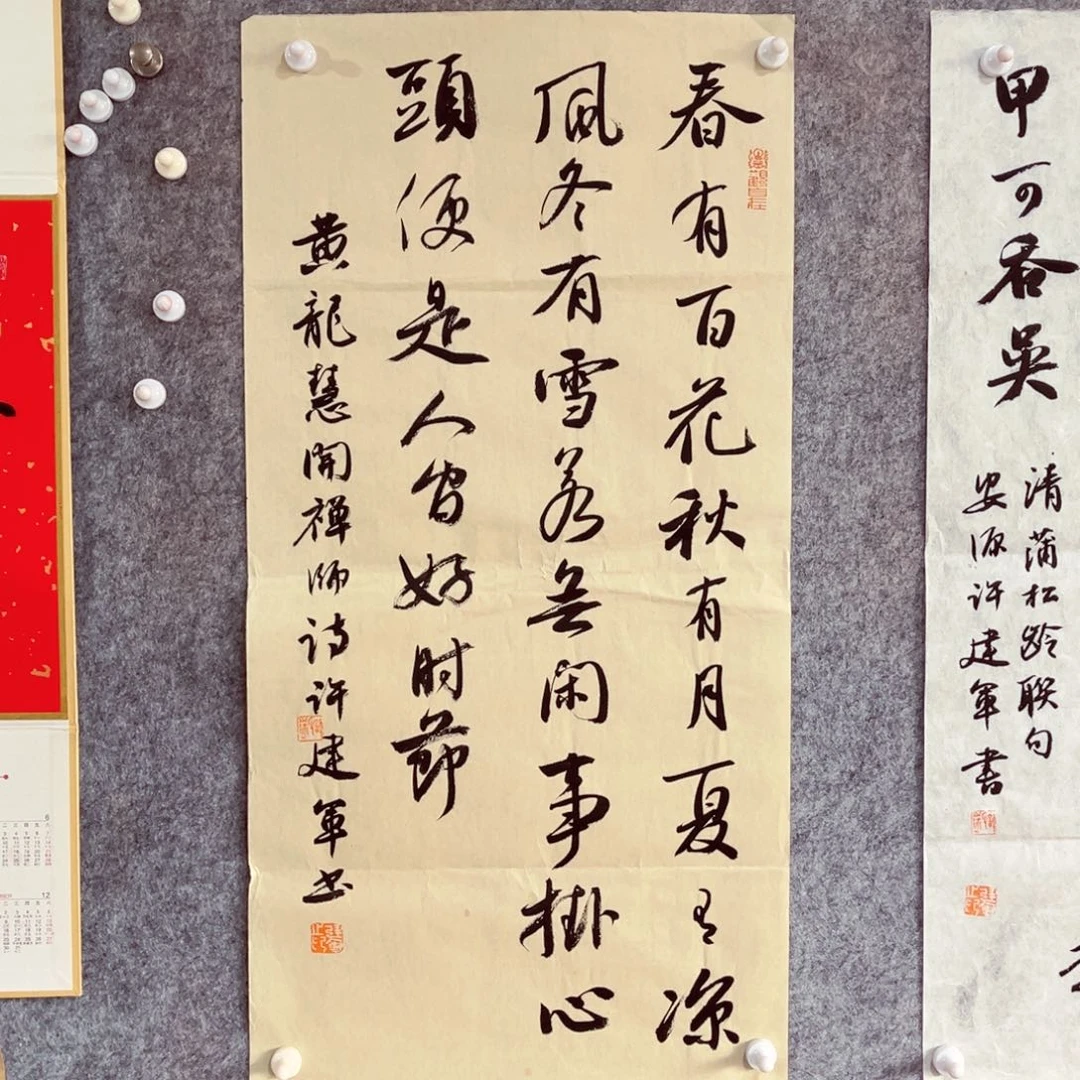 春有百花秋有月夏有凉
風冬有雪若無闲事掛心
頭便是人间好时節
黄龍慧開禅师诗许建军书
甲可吞吳
清蒲松龄联句
安源许建军書